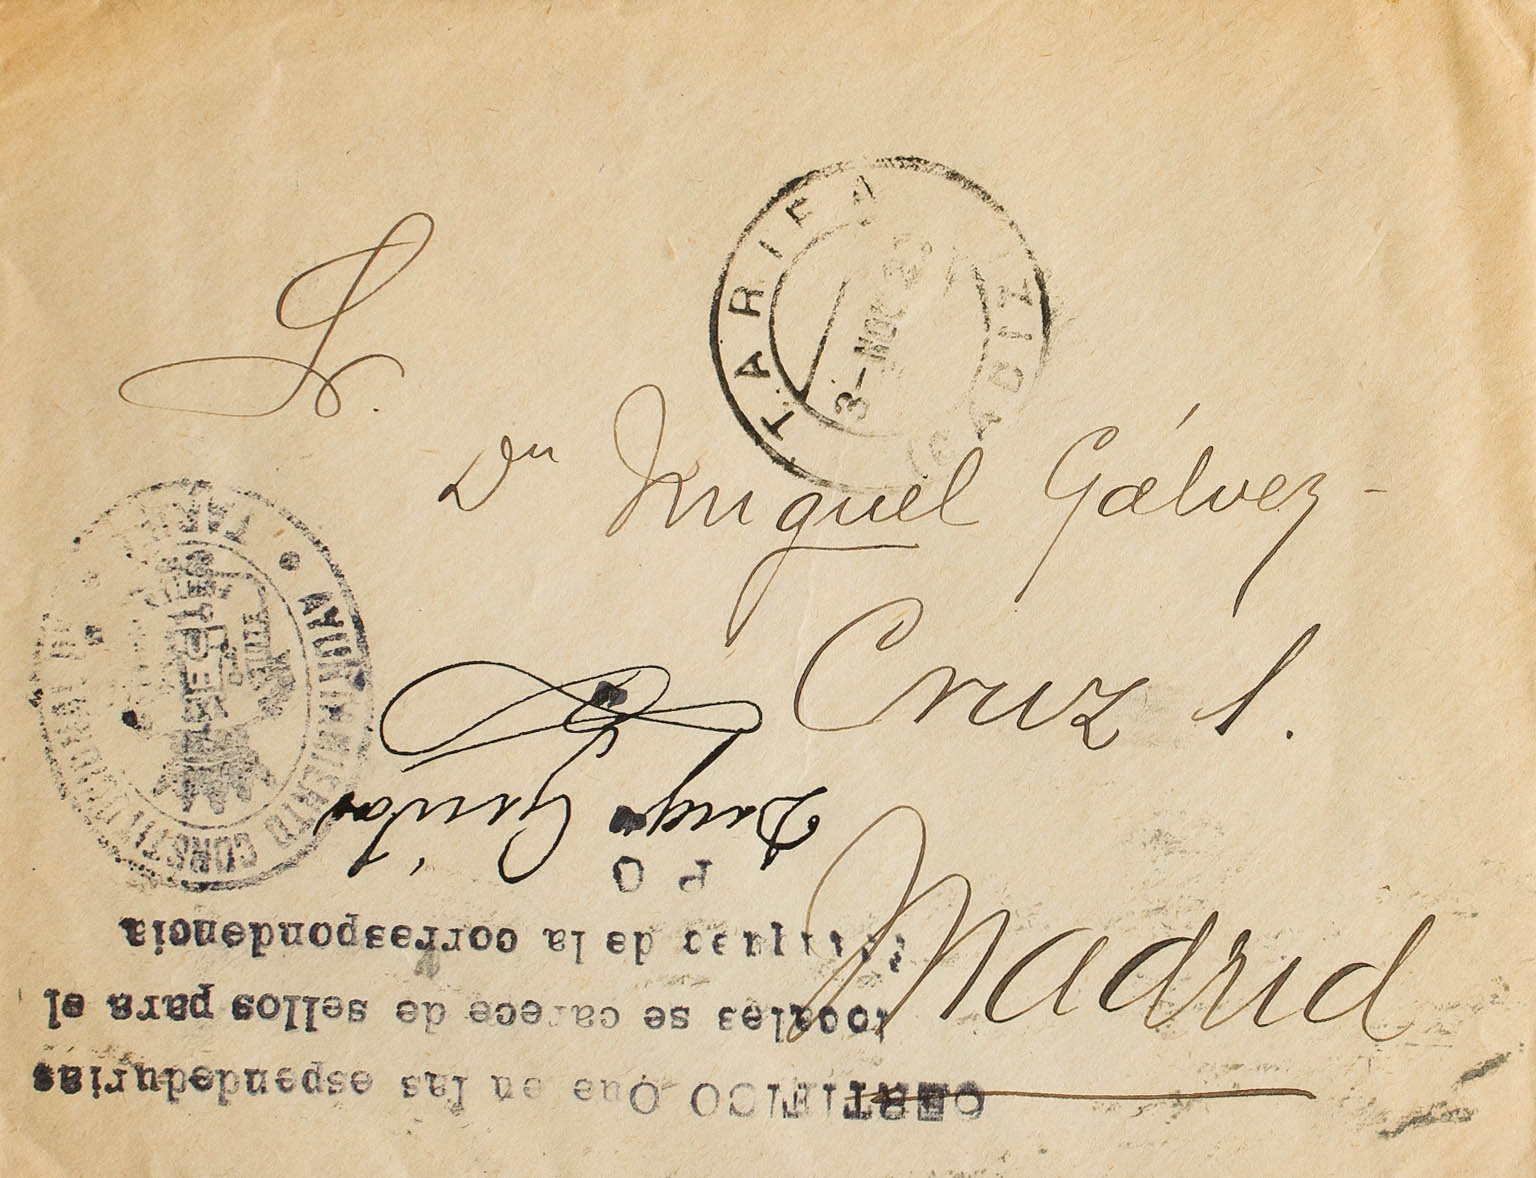 Sr.
Dn Miguel Gálvez-
Cruz 1.
Madrid
TARIFA
(CADIZ)
3-NOV
AYUNTAMIENTO CONSTITUCIONAL DE
TARIFA
CERTIFICO Que en las espendedurias
locales se carece de sellos para el
de la correspondencia
P O